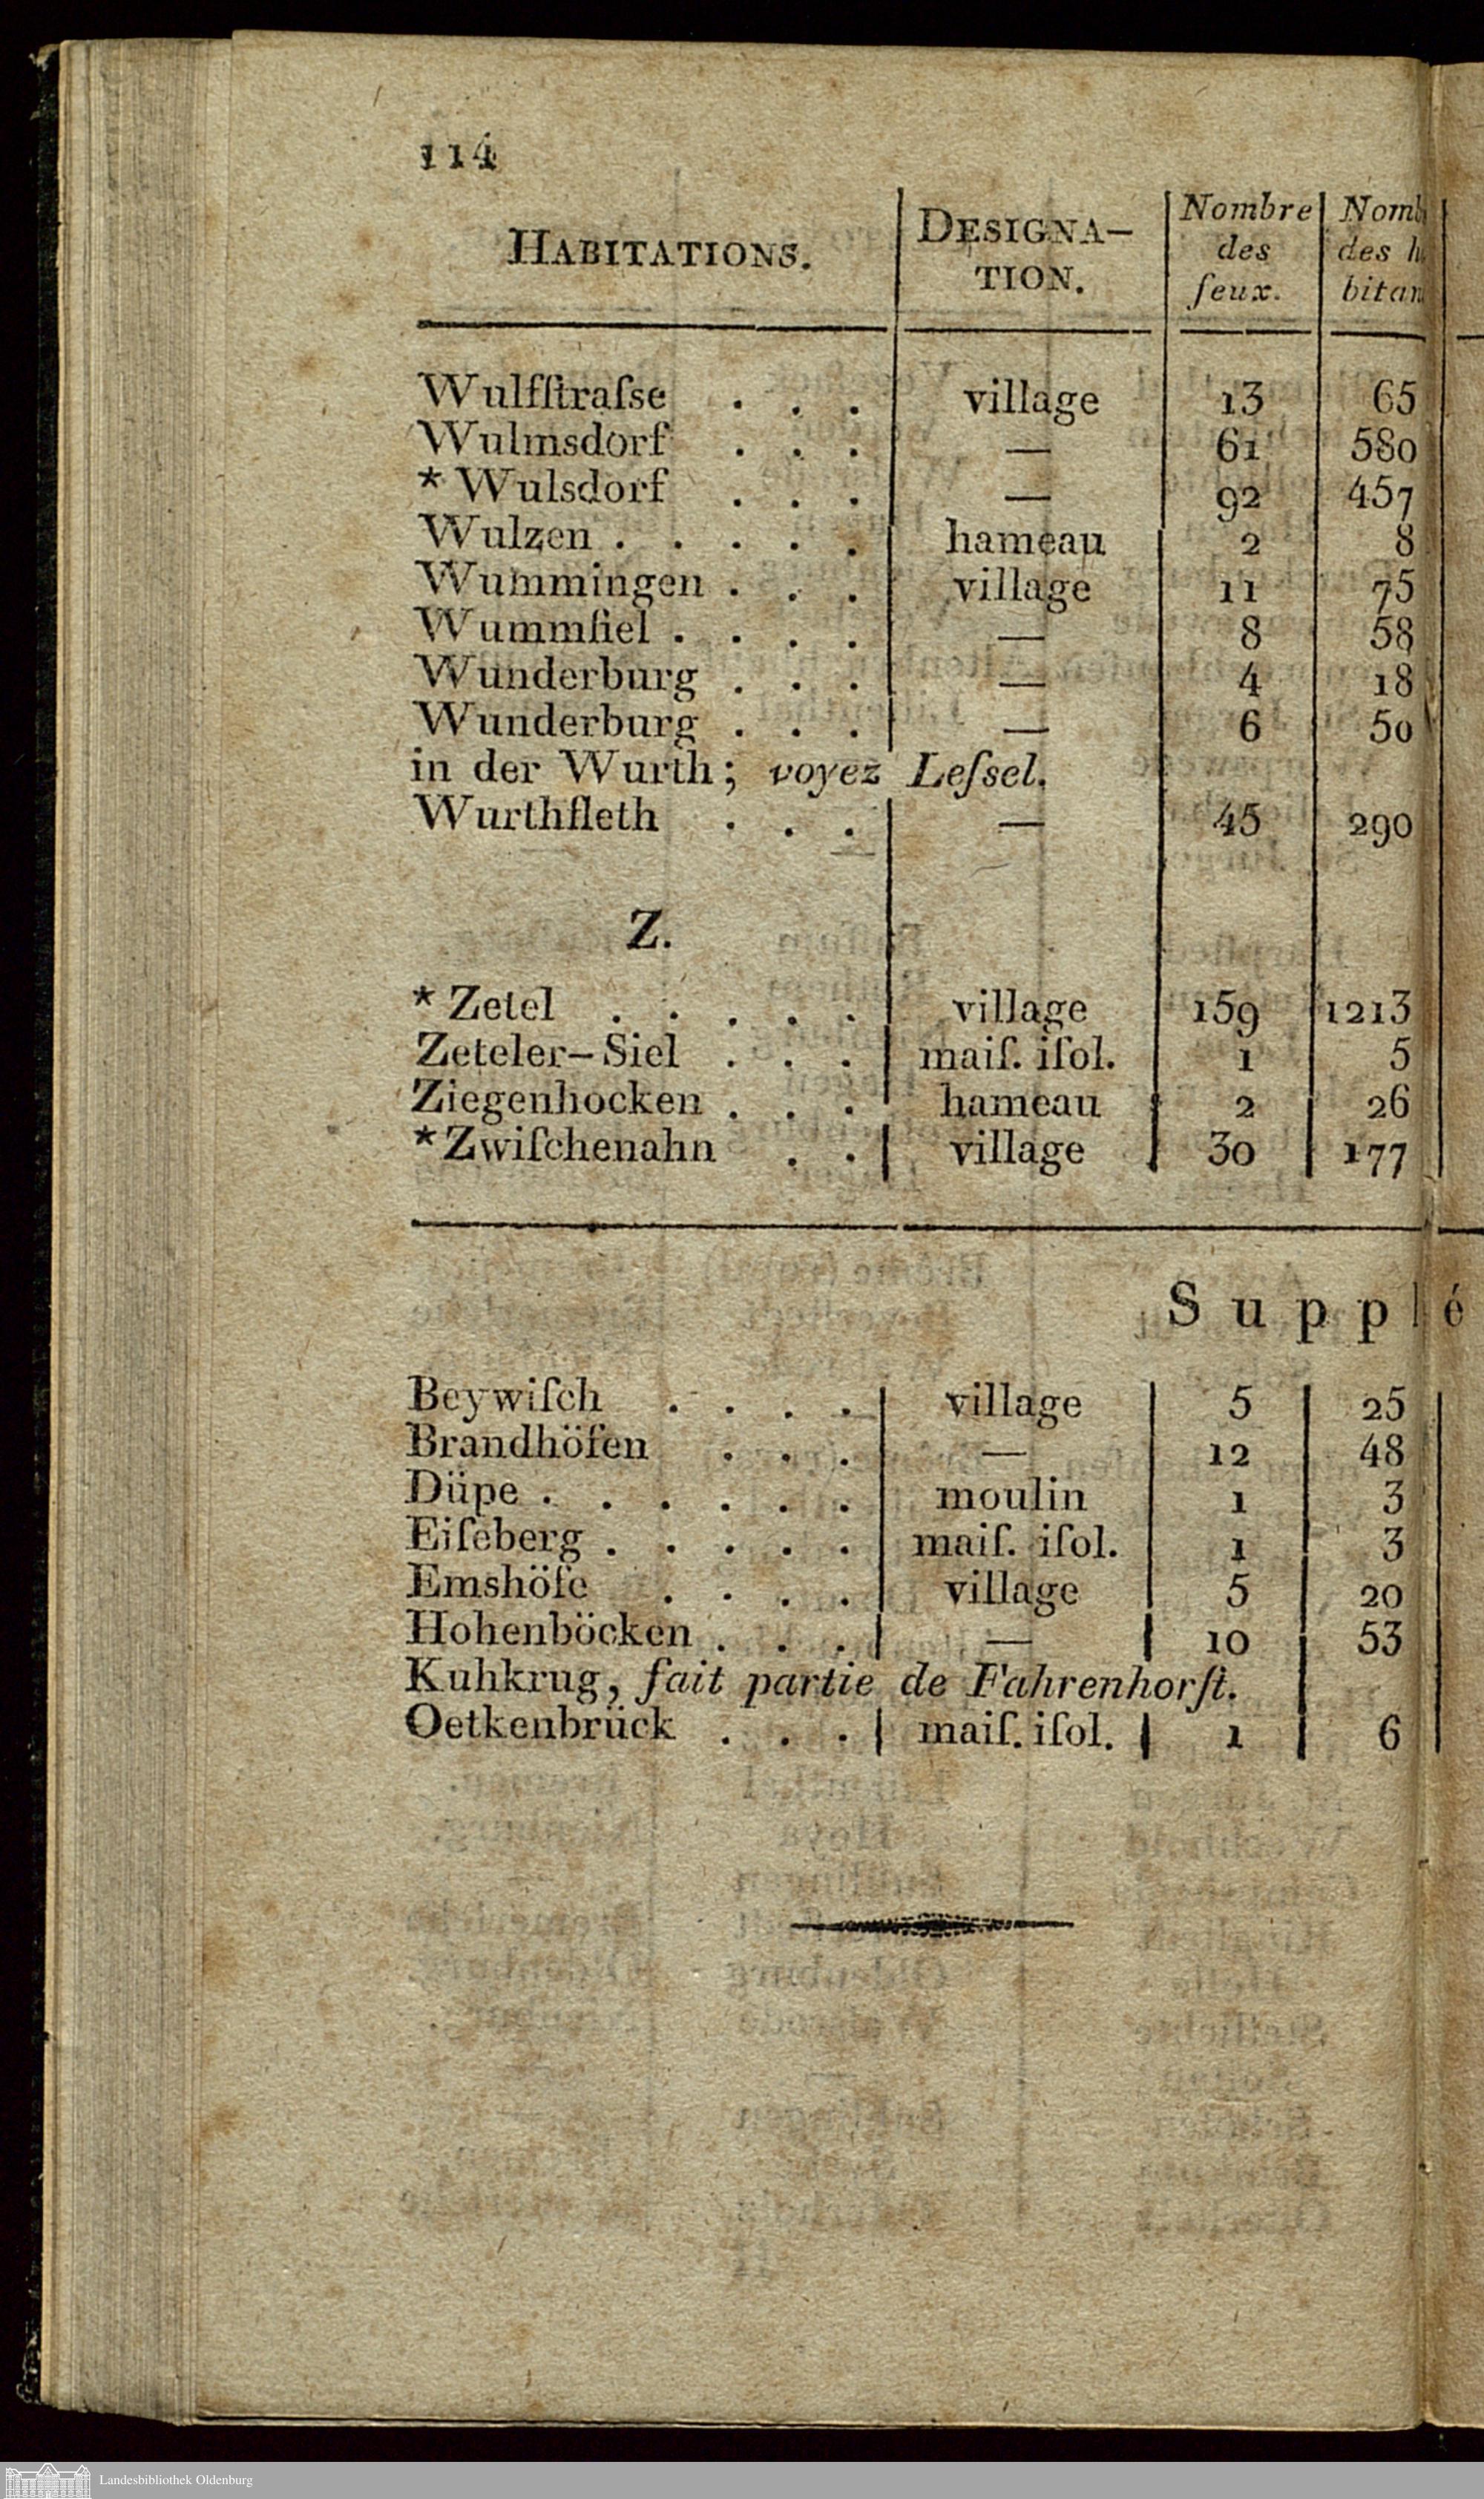 114
HABITATIONS. DESIGNA- TION. Nombre des feux. Nomb des h bitan
Wulfſtraſse . . . village 13 65
Wulmsdorf . . . — 61 580
* Wulsdorf . . . — 92 457
Wulzen . . . . . hameau 2 8
Wummingen . . . village 11 75
Wummſiel . . . . — 8 58
Wunderburg . . . — 4 18
Wunderburg . . . — 6 50
in der Wurth; voyez Leſsel.
Wurthfleth . . . — 45 290
Z.
* Zetel . . . . . village 159 1213
Zeteler-Siel . . . maiſ. iſol. 1 5
Ziegenhocken . . . hameau 2 26
* Zwiſchenahn . . village 30 177
Supplé
Beywiſch . . . . village 5 25
Brandhöfen . . . — 12 48
Düpe . . . . . . moulin 1 3
Eiſeberg . . . . . maiſ. iſol. 1 3
Emshöfe . . . . village 5 20
Hohenböcken . . . — 10 53
Kuhkrug, fait partie de Fahrenhorſt.
Oetkenbrück . . . maiſ. iſol. 1 6
Landesbibliothek Oldenburg